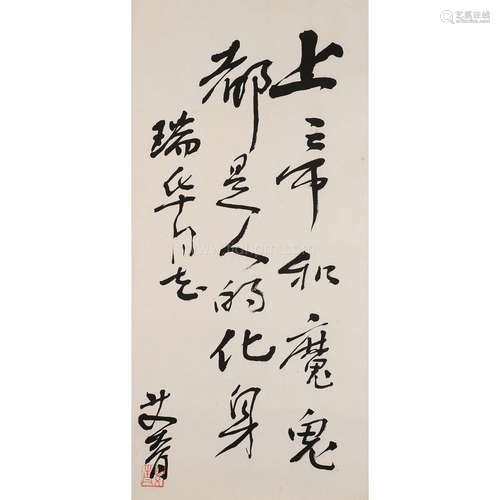 上帝和魔鬼
都是人的化身
瑞华同志
艾青